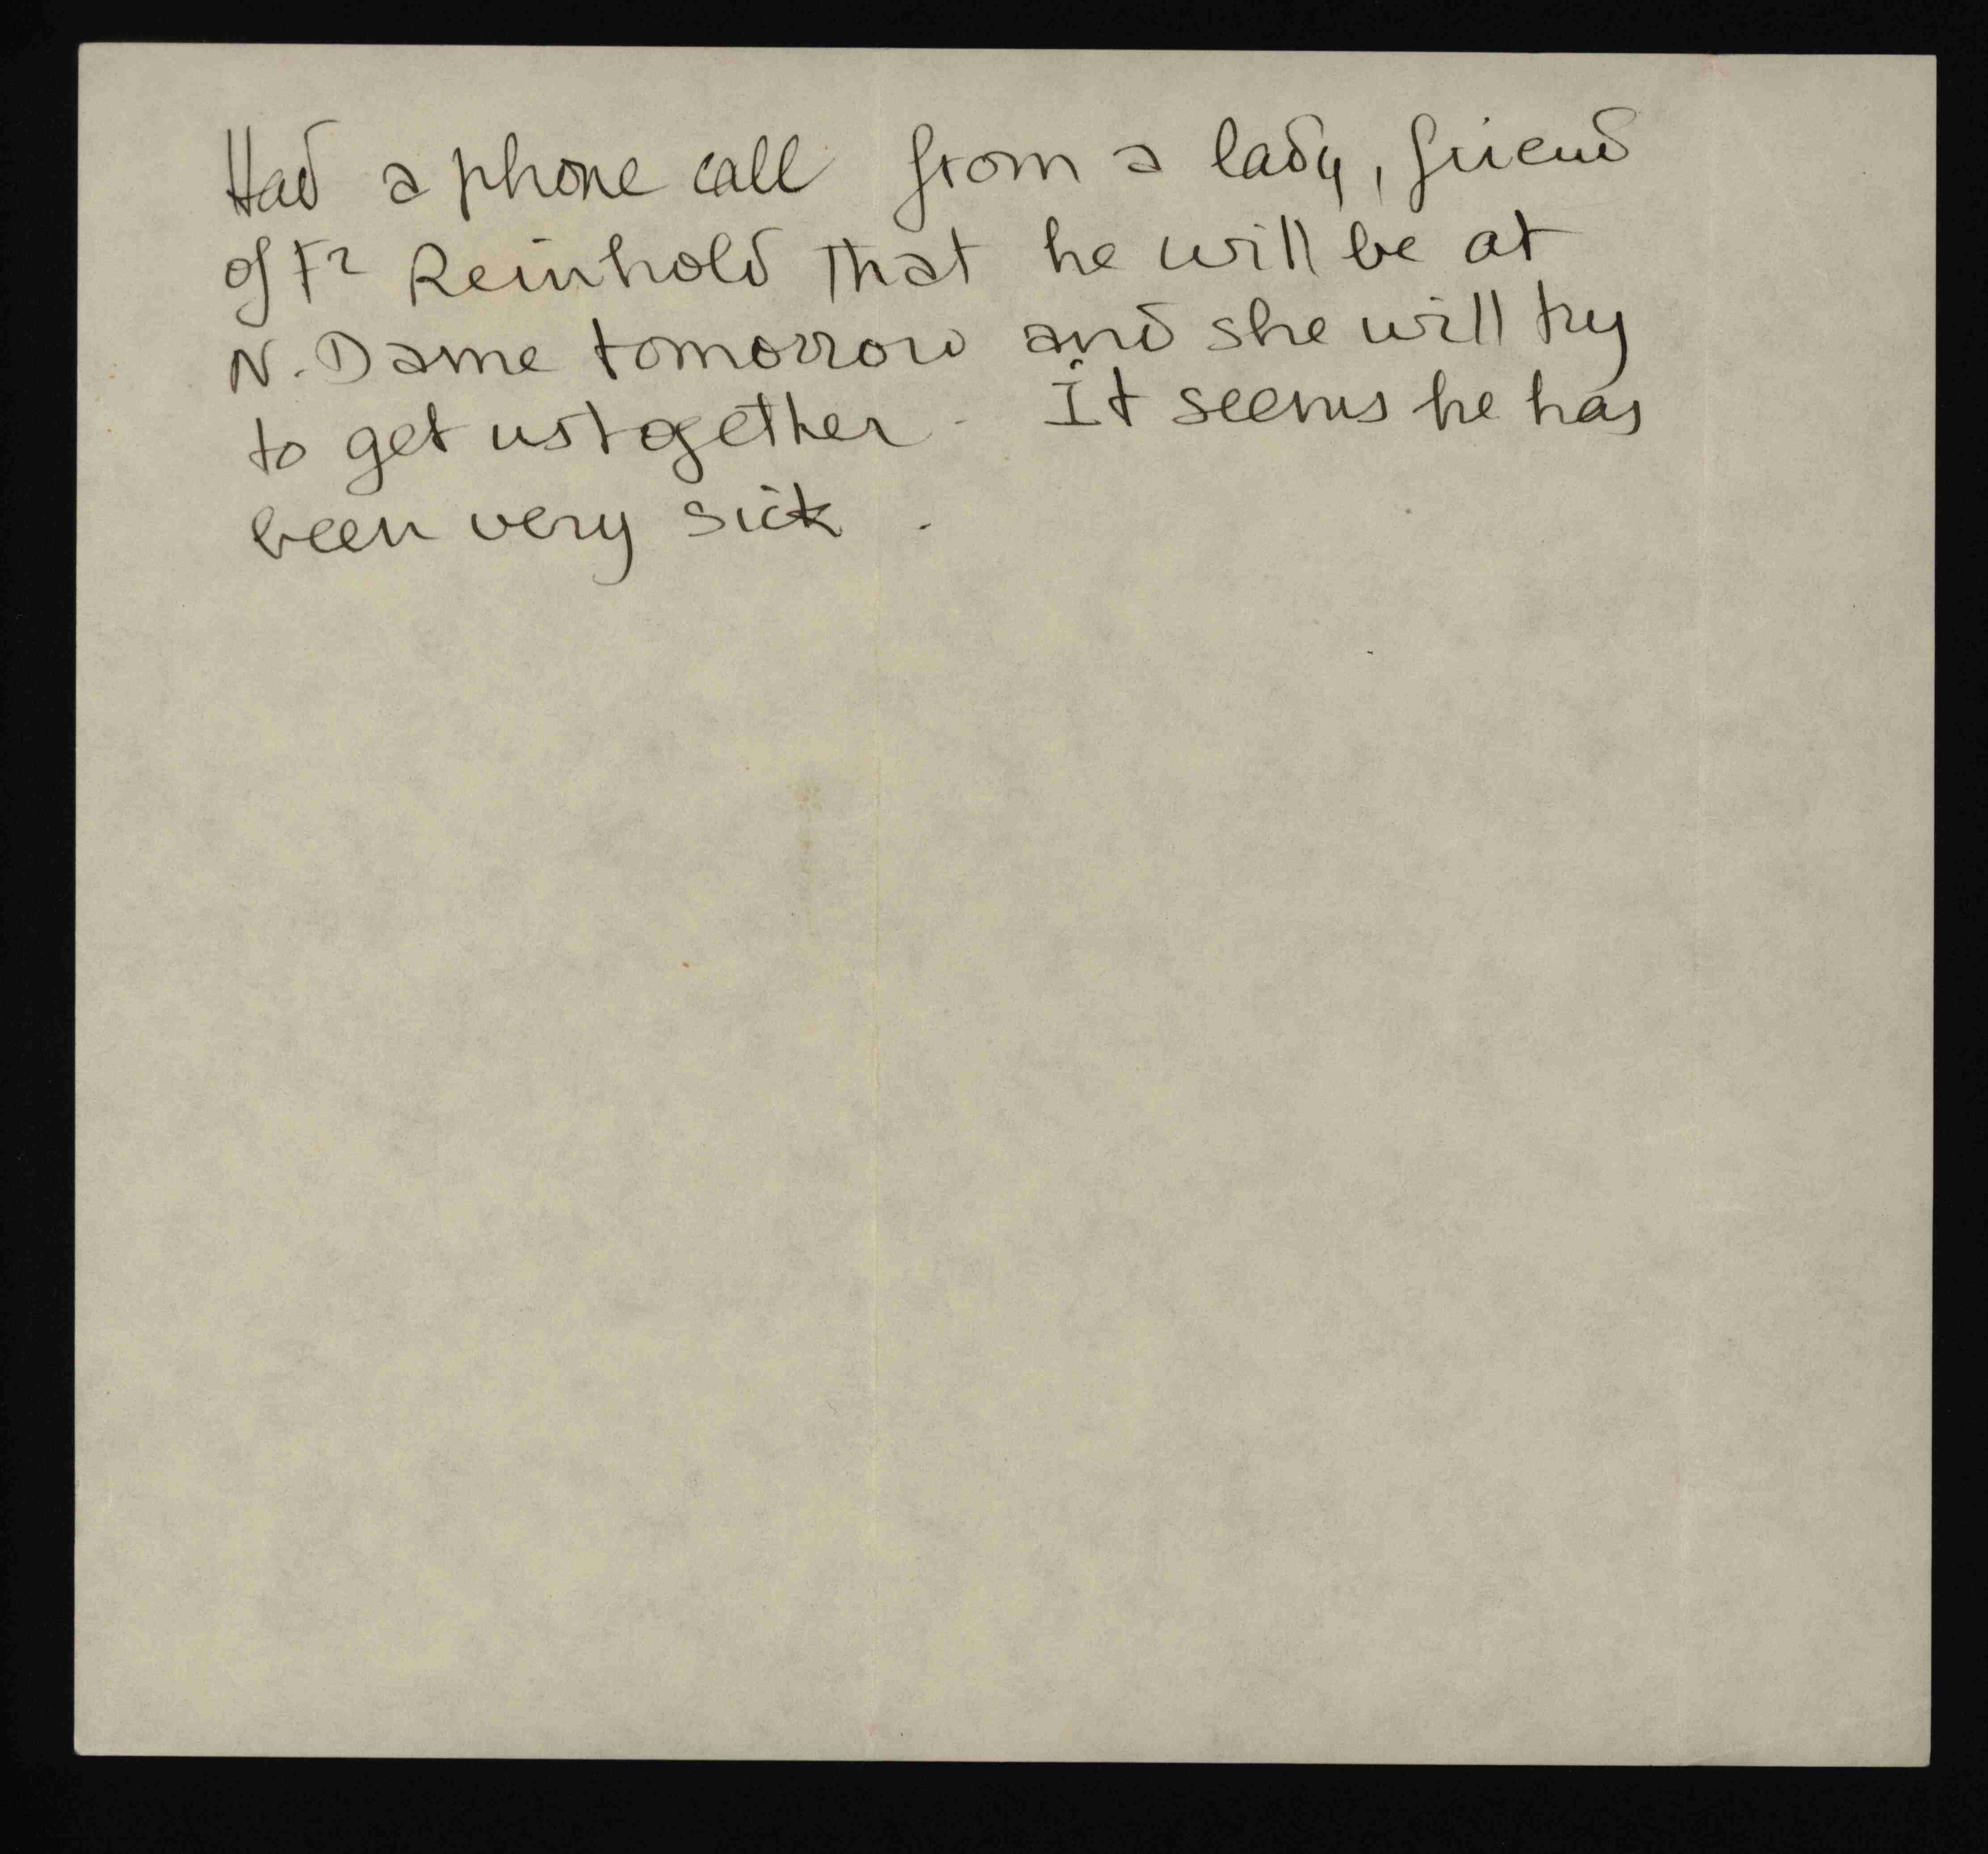 Had a phone call from a lady, friend
of Fr Reinhold that he will be at
N. Dame tomorrow and she will try
to get us together. It seems he has
been very sick.